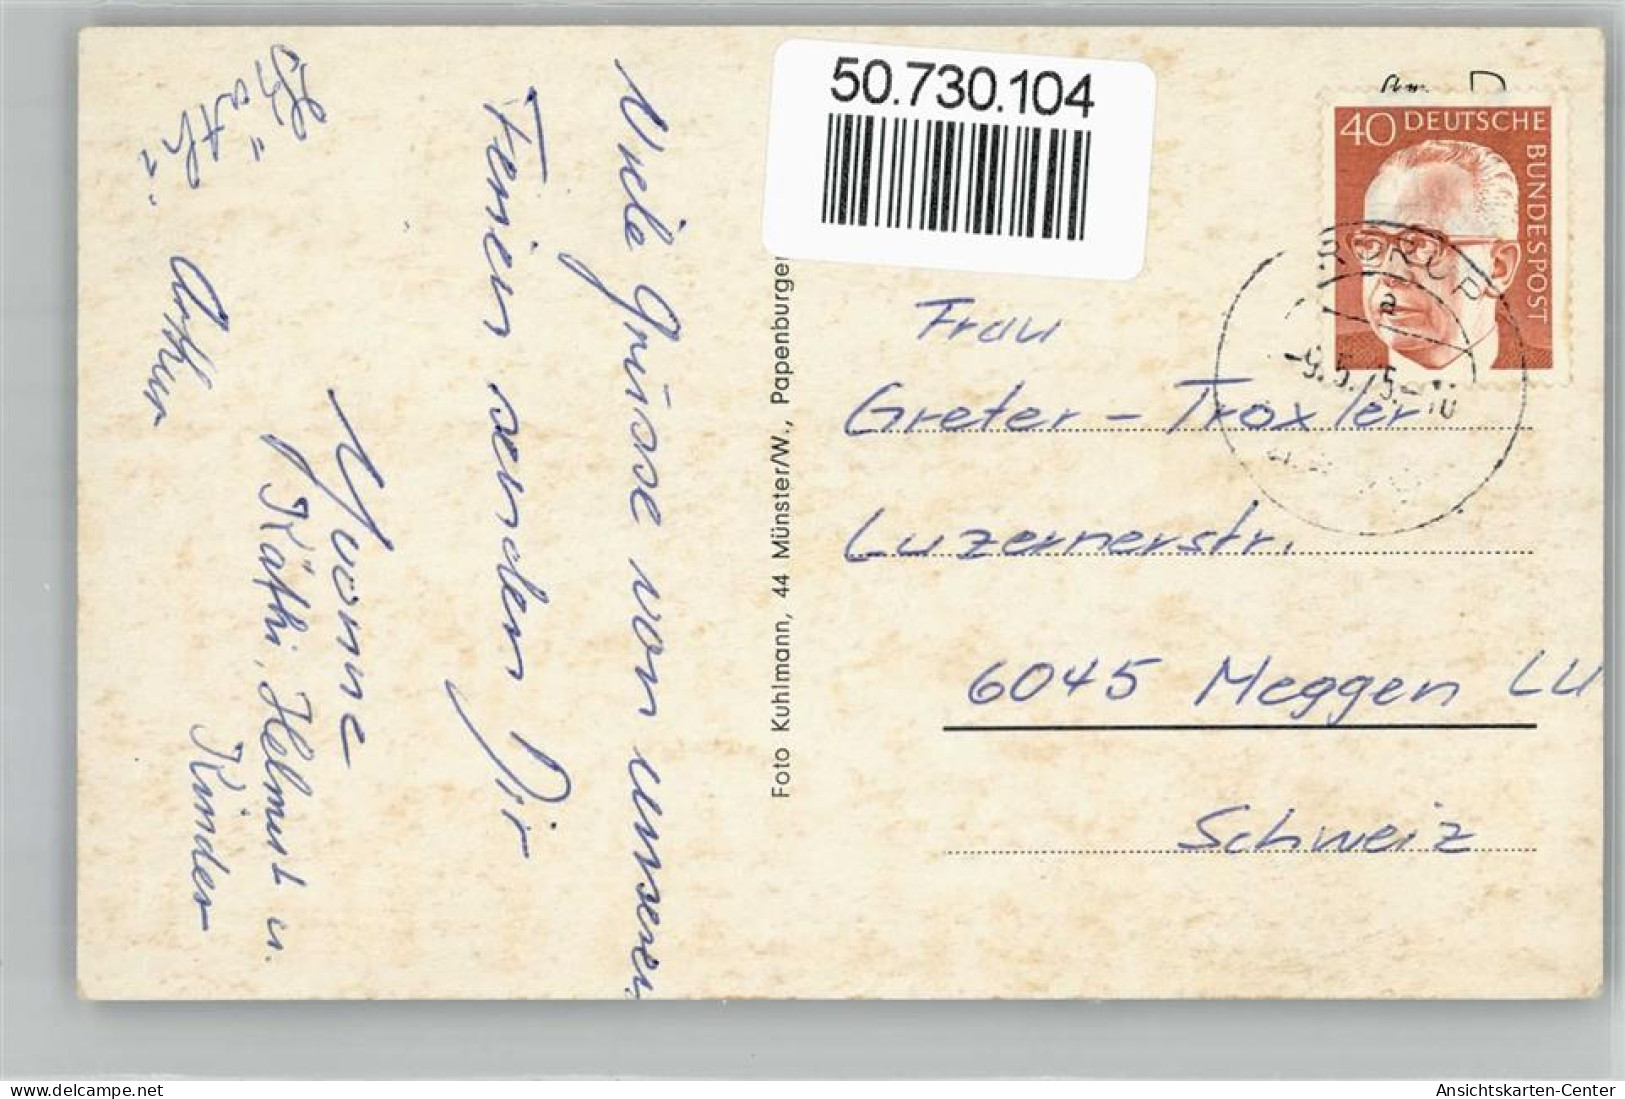 50.730.104
40 DEUTSCHE
BUNDESPOST
RORUP
a
-9.5.75.-10
Viele Grüsse von unseren
Ferien senden Dir
Yvonne
Käthi, Helmut u.
Kinder
Käthi
Arthur
Foto Kuhlmann, 44 Münster/W., Papenburger
Frau
Greter-Troxler
Luzernerstr.
6045 Meggen LU
Schweiz
delcampe.net
Ansichtskarten-Center